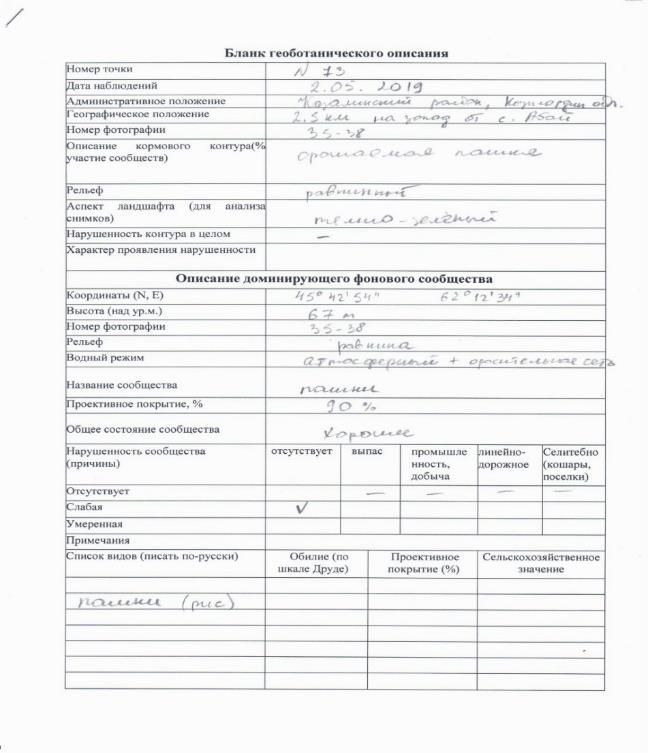 Бланк геоботанического описания
Номер точки N 73
Дата наблюдений 2.05. 2019
Административное положение Казалинский район, Кызлордин обл.
Географическое положение 2,5 км на запад от с. Абай
Номер фотографии 35-38
Описание кормового контура(%
участие сообществ) орошаемая пашня
Рельеф равнинный
Аспект ландшафта (для анализа
снимков) темно-зелёный
Нарушенность контура в целом –
Характер проявления нарушенности
Описание доминирующего фонового сообщества
Координаты (N, E) 45° 42' 54" 62° 12' 34"
Высота (над ур.м.) 67 м
Номер фотографии 35-38
Рельеф равнина
Водный режим атмосферный + оросительная сеть
Название сообщества пашни
Проективное покрытие, % 90 %
Общее состояние сообщества хорошее
Нарушенность сообщества отсутствует выпас промышле линейно- Селитебно
(причины) нность, дорожное (кошары,
добыча поселки)
Отсутствует – – – –
Слабая ✓
Умеренная
Примечания
Список видов (писать по-русски) Обилие (по Проективное Сельскохозяйственное
шкале Друде) покрытие (%) значение
пашни (рис)